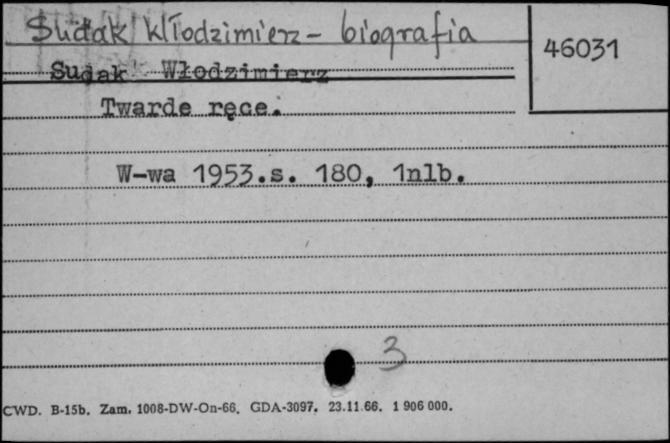 Sudak Włodzimierz - biografia
46031
Sudak Włodzimierz
Twarde ręce.
W-wa 1953.s. 180, 1nlb.
3
CWD. B-15b. Zam. 1008-DW-On-66. GDA-3097. 23.11.66. 1 906 000.